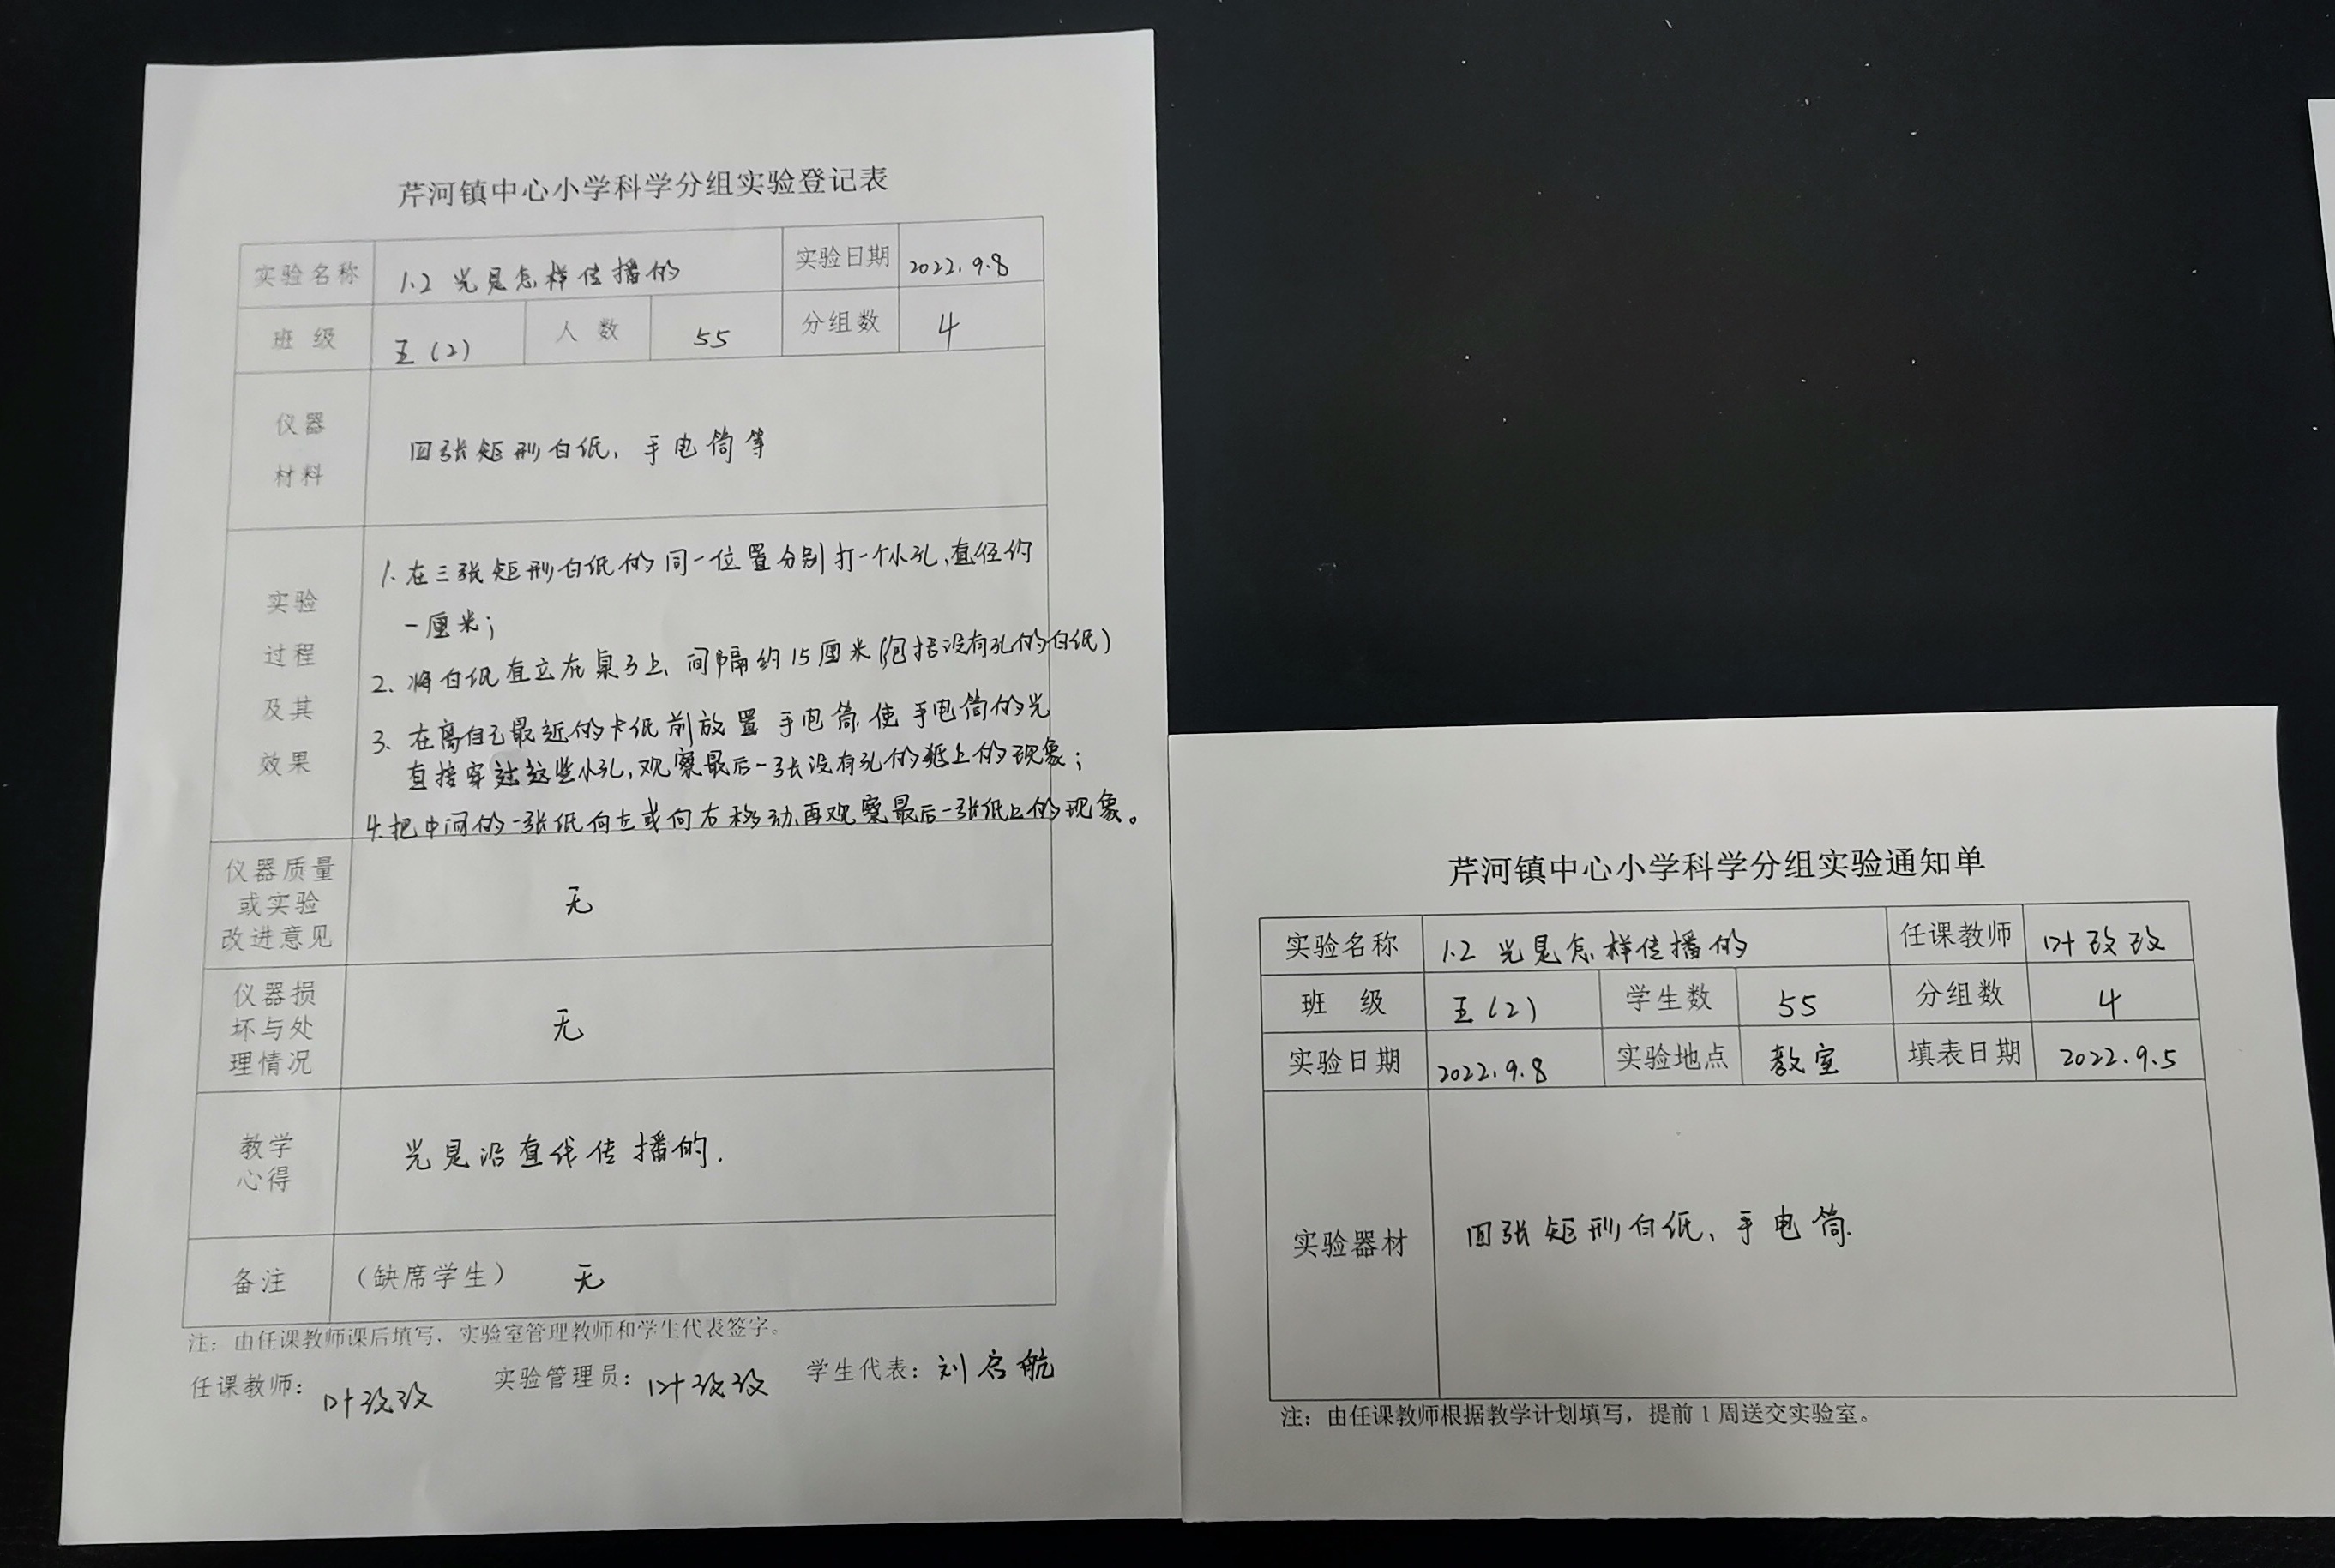 芹河镇中心小学科学分组实验登记表
实验名称 1.2 光是怎样传播的 实验日期 2022.9.8
班 级 五(2) 人 数 55 分组数 4
仪器
材料
四张矩形白纸、手电筒等
实验
过程
及其
效果
1. 在三张矩形白纸的同一位置分别打一个小孔、直径约
一厘米;
2. 将白纸直立在桌子上、间隔约15厘米(包括没有孔的白纸)
3. 在离自己最近的卡纸前放置手电筒.使手电筒的光
直接穿过这些小孔,观察最后一张没有孔的纸上的现象;
4.把中间的一张纸向左或向右移动,再观察最后一张纸上的现象。
仪器质量
或实验
改进意见
无
仪器损
坏与处
理情况
无
教学
心得
光是沿直线传播的.
备注 (缺席学生) 无
注:由任课教师课后填写,实验室管理教师和学生代表签字。
任课教师:叶孜孜 实验管理员:叶孜孜 学生代表:刘启航
芹河镇中心小学科学分组实验通知单
实验名称 1.2 光是怎样传播的 任课教师 叶孜孜
班 级 五(2) 学生数 55 分组数 4
实验日期 2022.9.8 实验地点 教室 填表日期 2022.9.5
实验器材 四张矩形白纸、手电筒.
注:由任课教师根据教学计划填写,提前1周送交实验室。